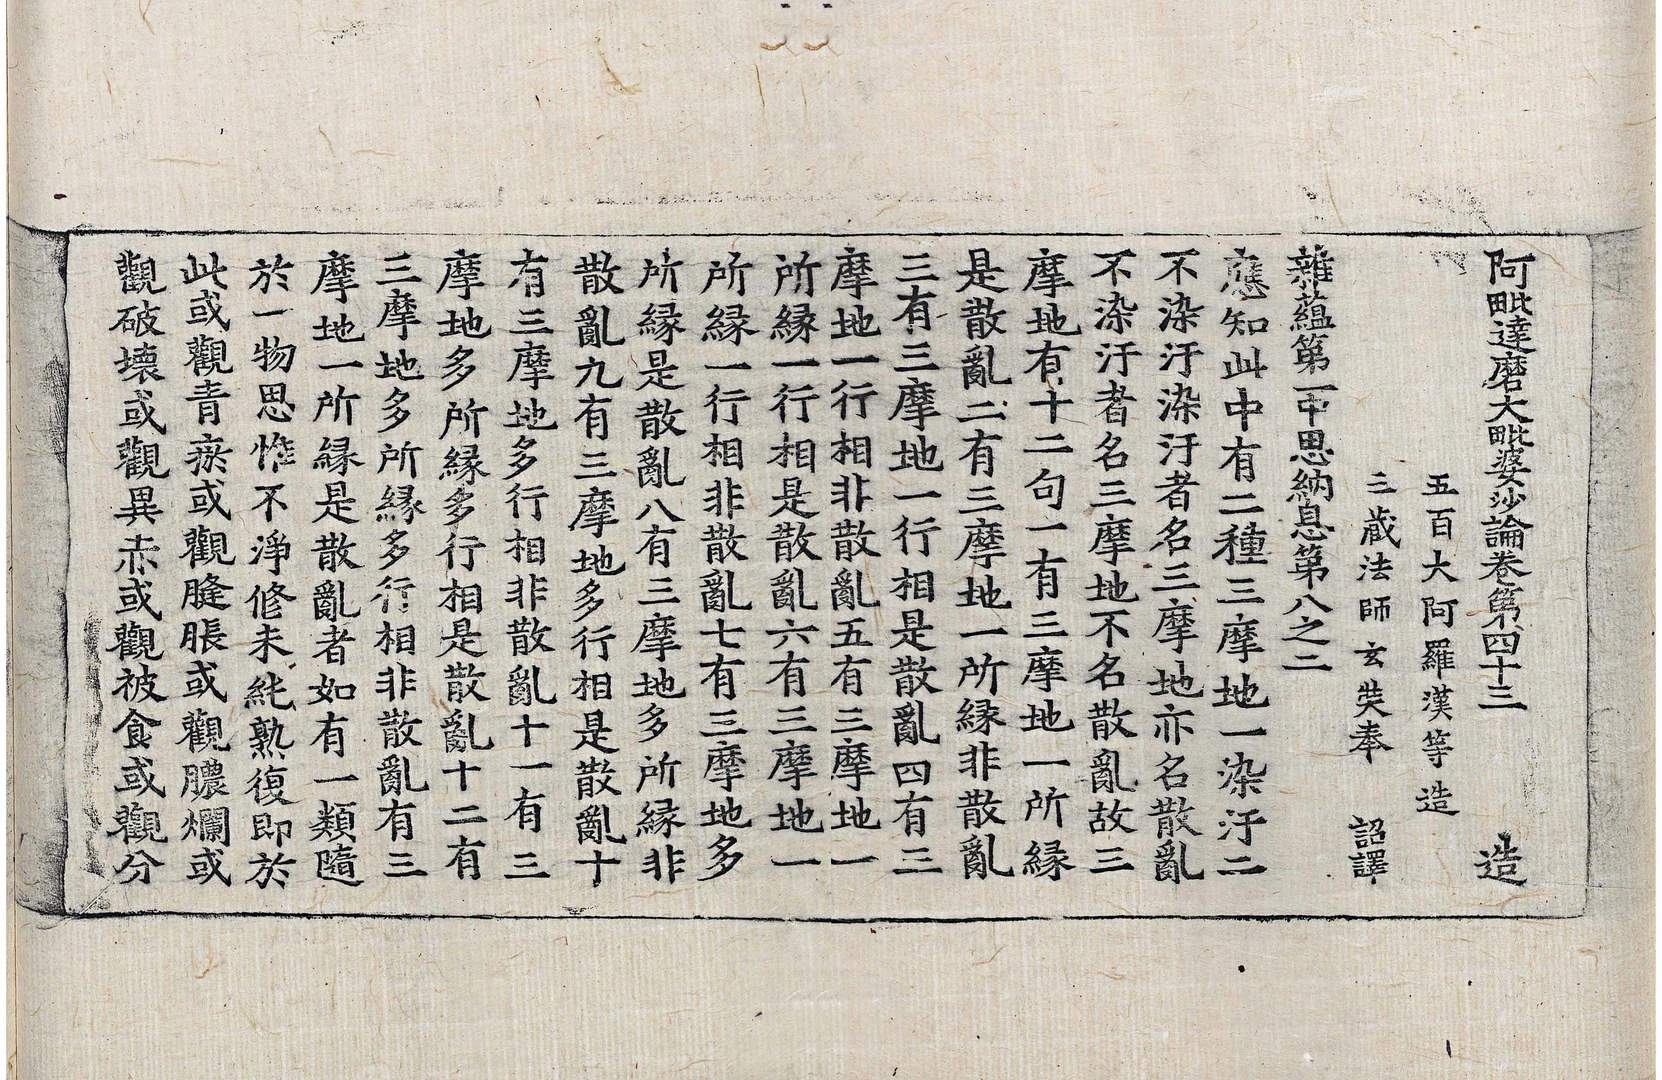 阿毗達磨大毗婆沙論卷第四十三　造
五百大阿羅漢等造
三藏法師玄奘奉　詔譯
雜蘊第一中思納息第八之二
應知此中有二種三摩地一染汙二
不染汙染汙者名三摩地亦名散亂
不染汙者名三摩地不名散亂故三
摩地有十二句一有三摩地一所緣
是散亂二有三摩地一所緣非散亂
三有三摩地一行相是散亂四有三
摩地一行相非散亂五有三摩地一
所緣一行相是散亂六有三摩地一
所緣一行相非散亂七有三摩地多
所緣是散亂八有三摩地多所緣非
散亂九有三摩地多行相是散亂十
有三摩地多行相非散亂十一有三
摩地多所緣多行相是散亂十二有
三摩地多所緣多行相非散亂有三
摩地一所緣是散亂者如有一類隨
於一物思惟不淨修未純熟復即於
此或觀青瘀或觀膖脹或觀膿爛或
觀破壞或觀異赤或觀被食或觀分